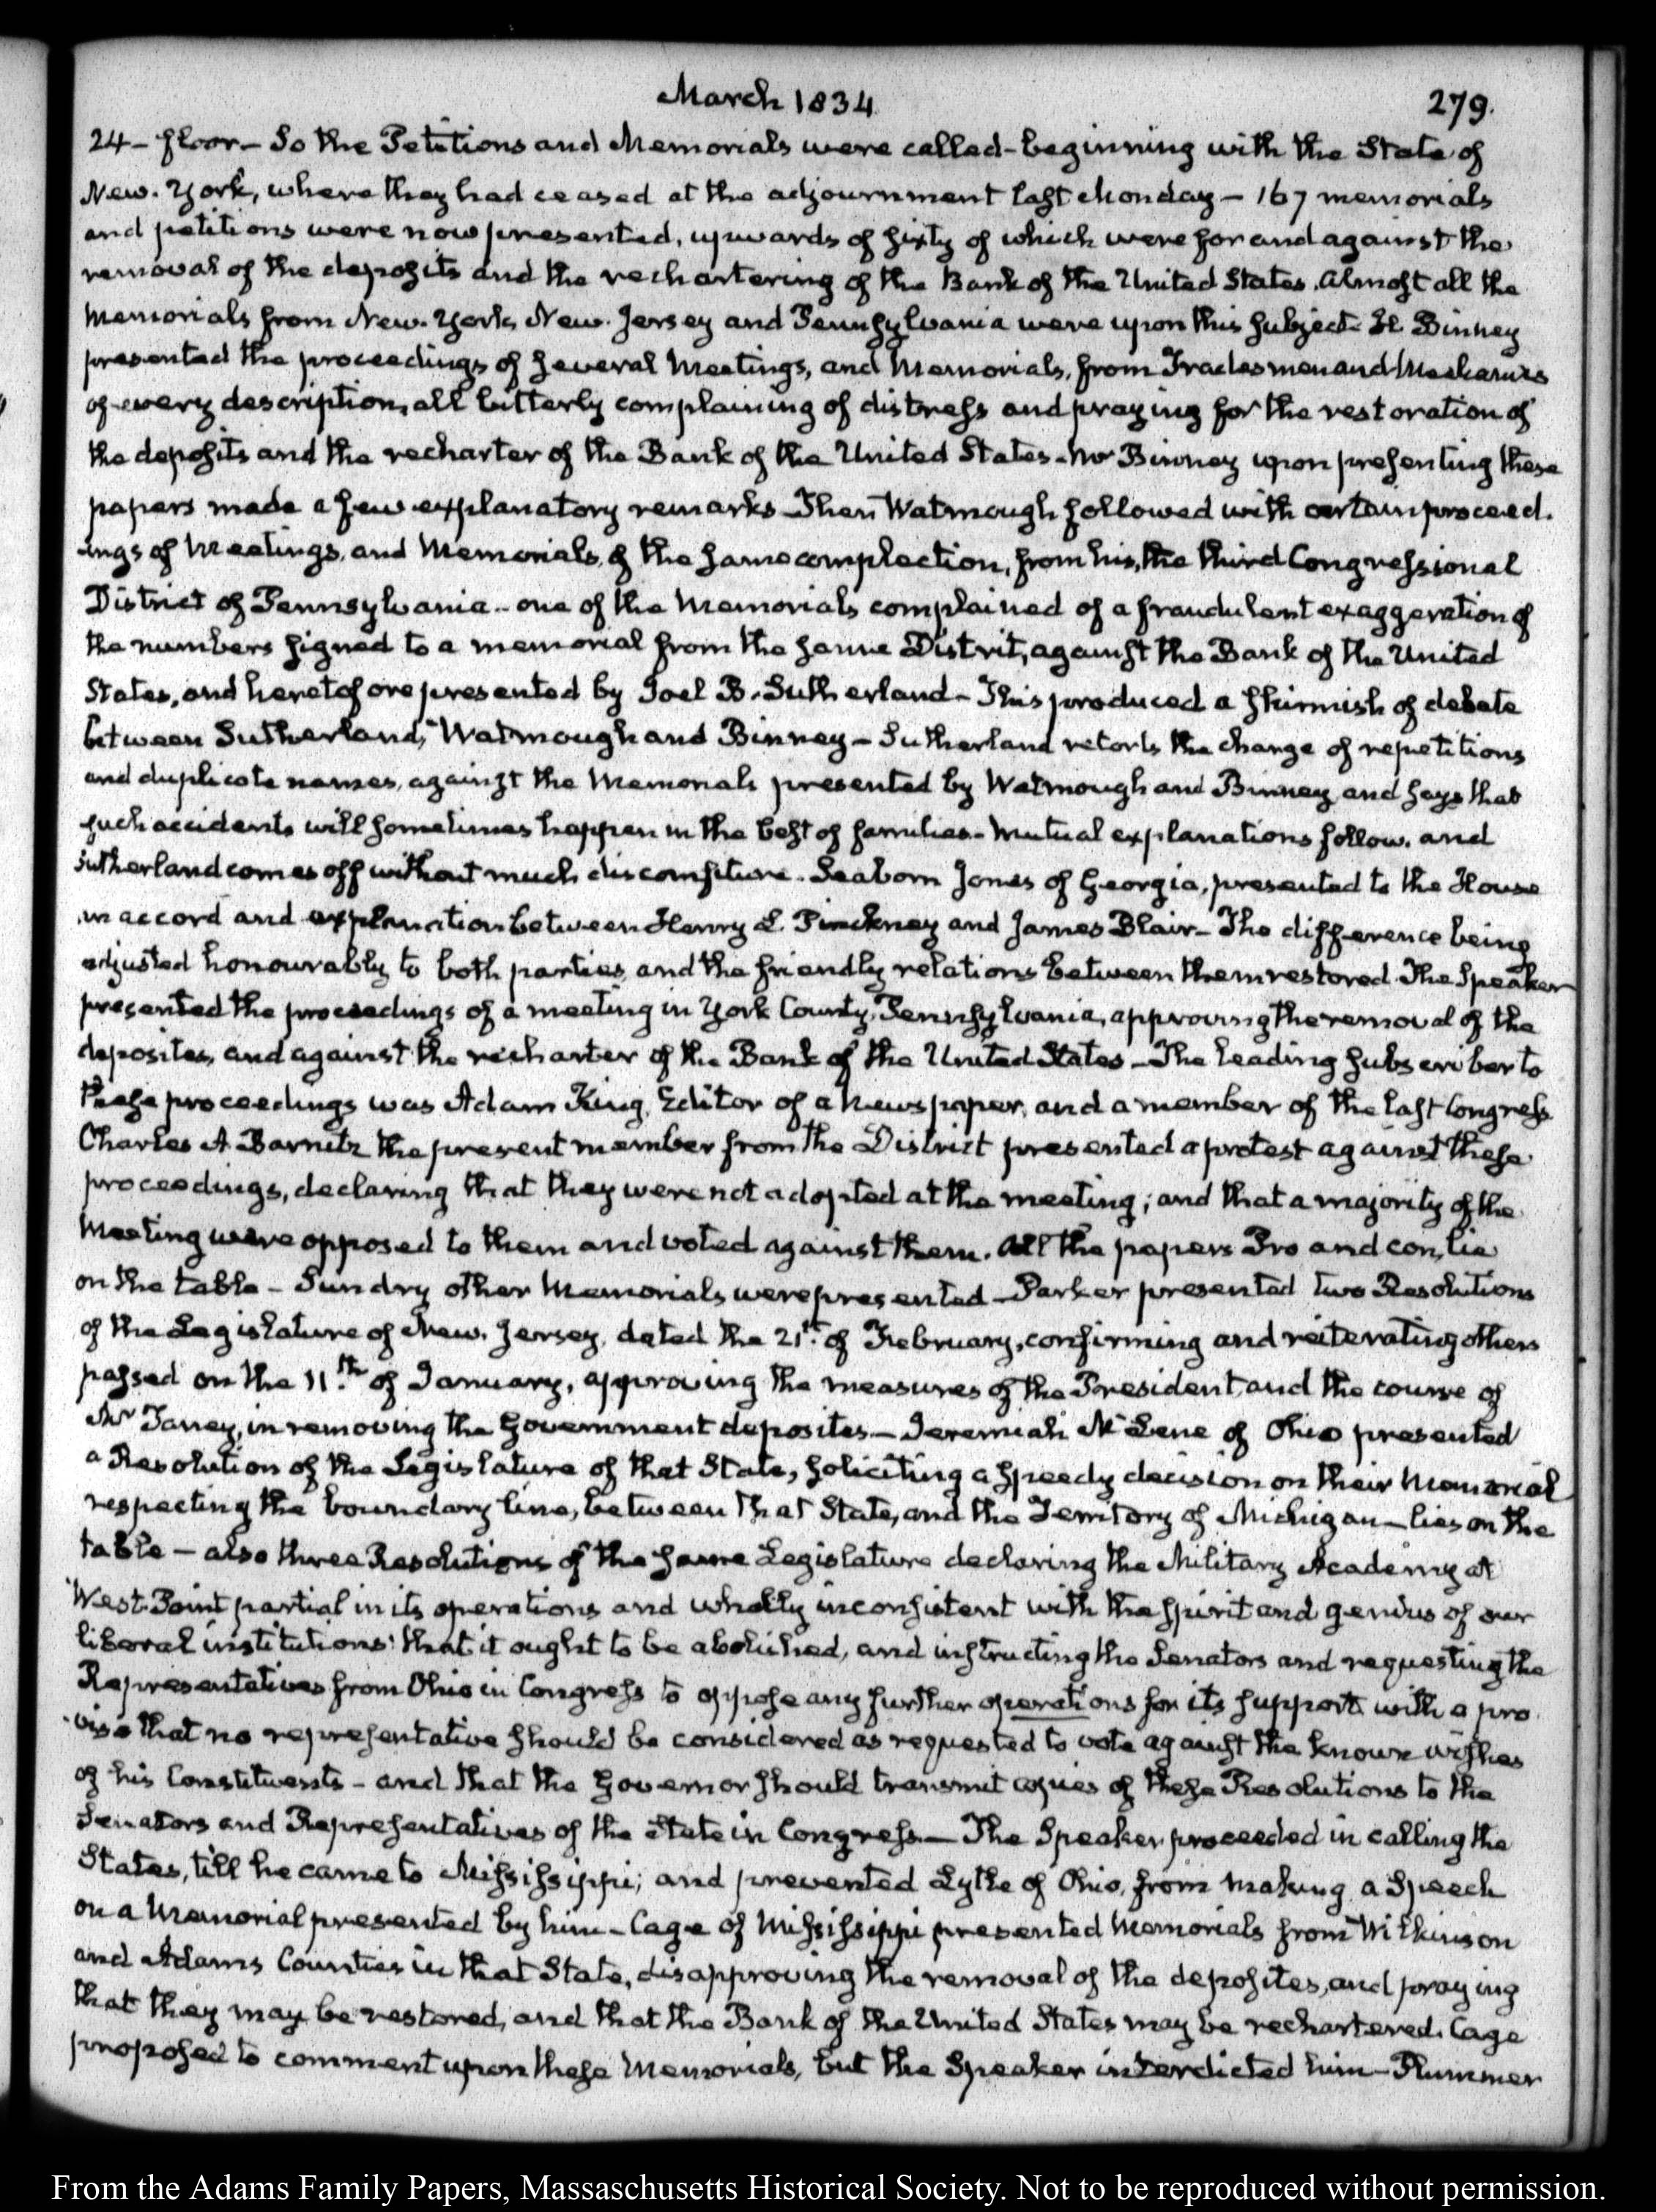 March 1834
279.
24 – floor – So the Petitions and Memorials were called – beginning with the State of
New. York, where they had ceased at the adjournment last Monday – 167 memorials
and petitions were now presented, upwards of sixty of which were for and against the
removal of the deposits and the rechartering of the Bank of the United States. Almost all the
Memorials from New. York, New. Jersey and Pennsylvania were upon this subject. Binney
presented the proceedings of several Meetings, and Memorials, from Tradesmen and Mechanics
of every description, all bitterly complaining of distress and praying for the restoration of
the deposits and the recharter of the Bank of the United States – Mr Binney upon presenting these
papers made a few explanatory remarks – Then Watmough followed with certain proceed.
ings of Meetings, and Memorials, of the same complection, from his, the third Congressional
District of Pennsylvania – one of the Memorials complained of a fraudulent exaggeration of
the numbers signed to a memorial from the same District, against the Bank of the United
States, and heretofore presented by Joel B. Sutherland – This produced a skirmish of debate
between Sutherland, Watmough and Binney – Sutherland retorts the charge of repetitions
and duplicate names, against the Memorials presented by Watmough and Binney and says that
such accidents will sometimes happen in the best of families – Mutual explanations follow, and
Sutherland comes off without much discomfiture. Seaborn Jones of Georgia, presented to the House
an accord and explanation between Henry L. Pinckney and James Blair – The difference being
adjusted honourably to both parties, and the friendly relations between them restored. The Speaker
presented the proceedings of a meeting in York County, Pennsylvania, approving the removal of the
deposites, and against the recharter of the Bank of the United States – The leading subscriber to
these proceedings was Adam King, Editor of a Newspaper, and a member of the last Congress.
Charles A Barnitz the present member from the District presented a protest against these
proceedings, declaring that they were not adopted at the meeting; and that a majority of the
Meeting were opposed to them and voted against them. All the papers Pro and con, lie
on the table – Sundry other Memorials were presented – Parker presented two Resolutions
of the Legislature of New. Jersey, dated the 21st. of February, confirming and reiterating others
passed on the 11.th of January, approving the measures of the President, and the course of
Mr Taney, in removing the Government deposites – Jeremiah McLene of Ohio presented
a Resolution of the Legislature of that State, soliciting a speedy decision on their Memorial
respecting the boundary line, between that State, and the Territory of Michigan – lies on the
table – also three Resolutions of the same Legislature declaring the Military Academy at
West. Point partial in its operations and wholly inconsistent with the spirit and genius of our
liberal institutions: that it ought to be abolished, and instructing the Senators and requesting the
Representatives from Ohio in Congress to oppose any further operations for its support: with a pro
viso that no representative should be considered as requested to vote against the known wishes
of his Constituents – and that the Governor should transmit copies of these Resolutions to the
Senators and Representatives of the State in Congress – The Speaker proceeded in calling the
States, till he came to Mississippi; and prevented Lytle of Ohio, from making a Speech
on a Memorial presented by him – Cage of Mississippi presented Memorials from Wilkinson
and Adams Counties in that State, disapproving the removal of the deposites, and praying
that they may be restored, and that the Bank of the United States may be rechartered. Cage
proposed to comment upon these Memorials, but the Speaker interdicted him – Plummer
From the Adams Family Papers, Massachusetts Historical Society. Not to be reproduced without permission.